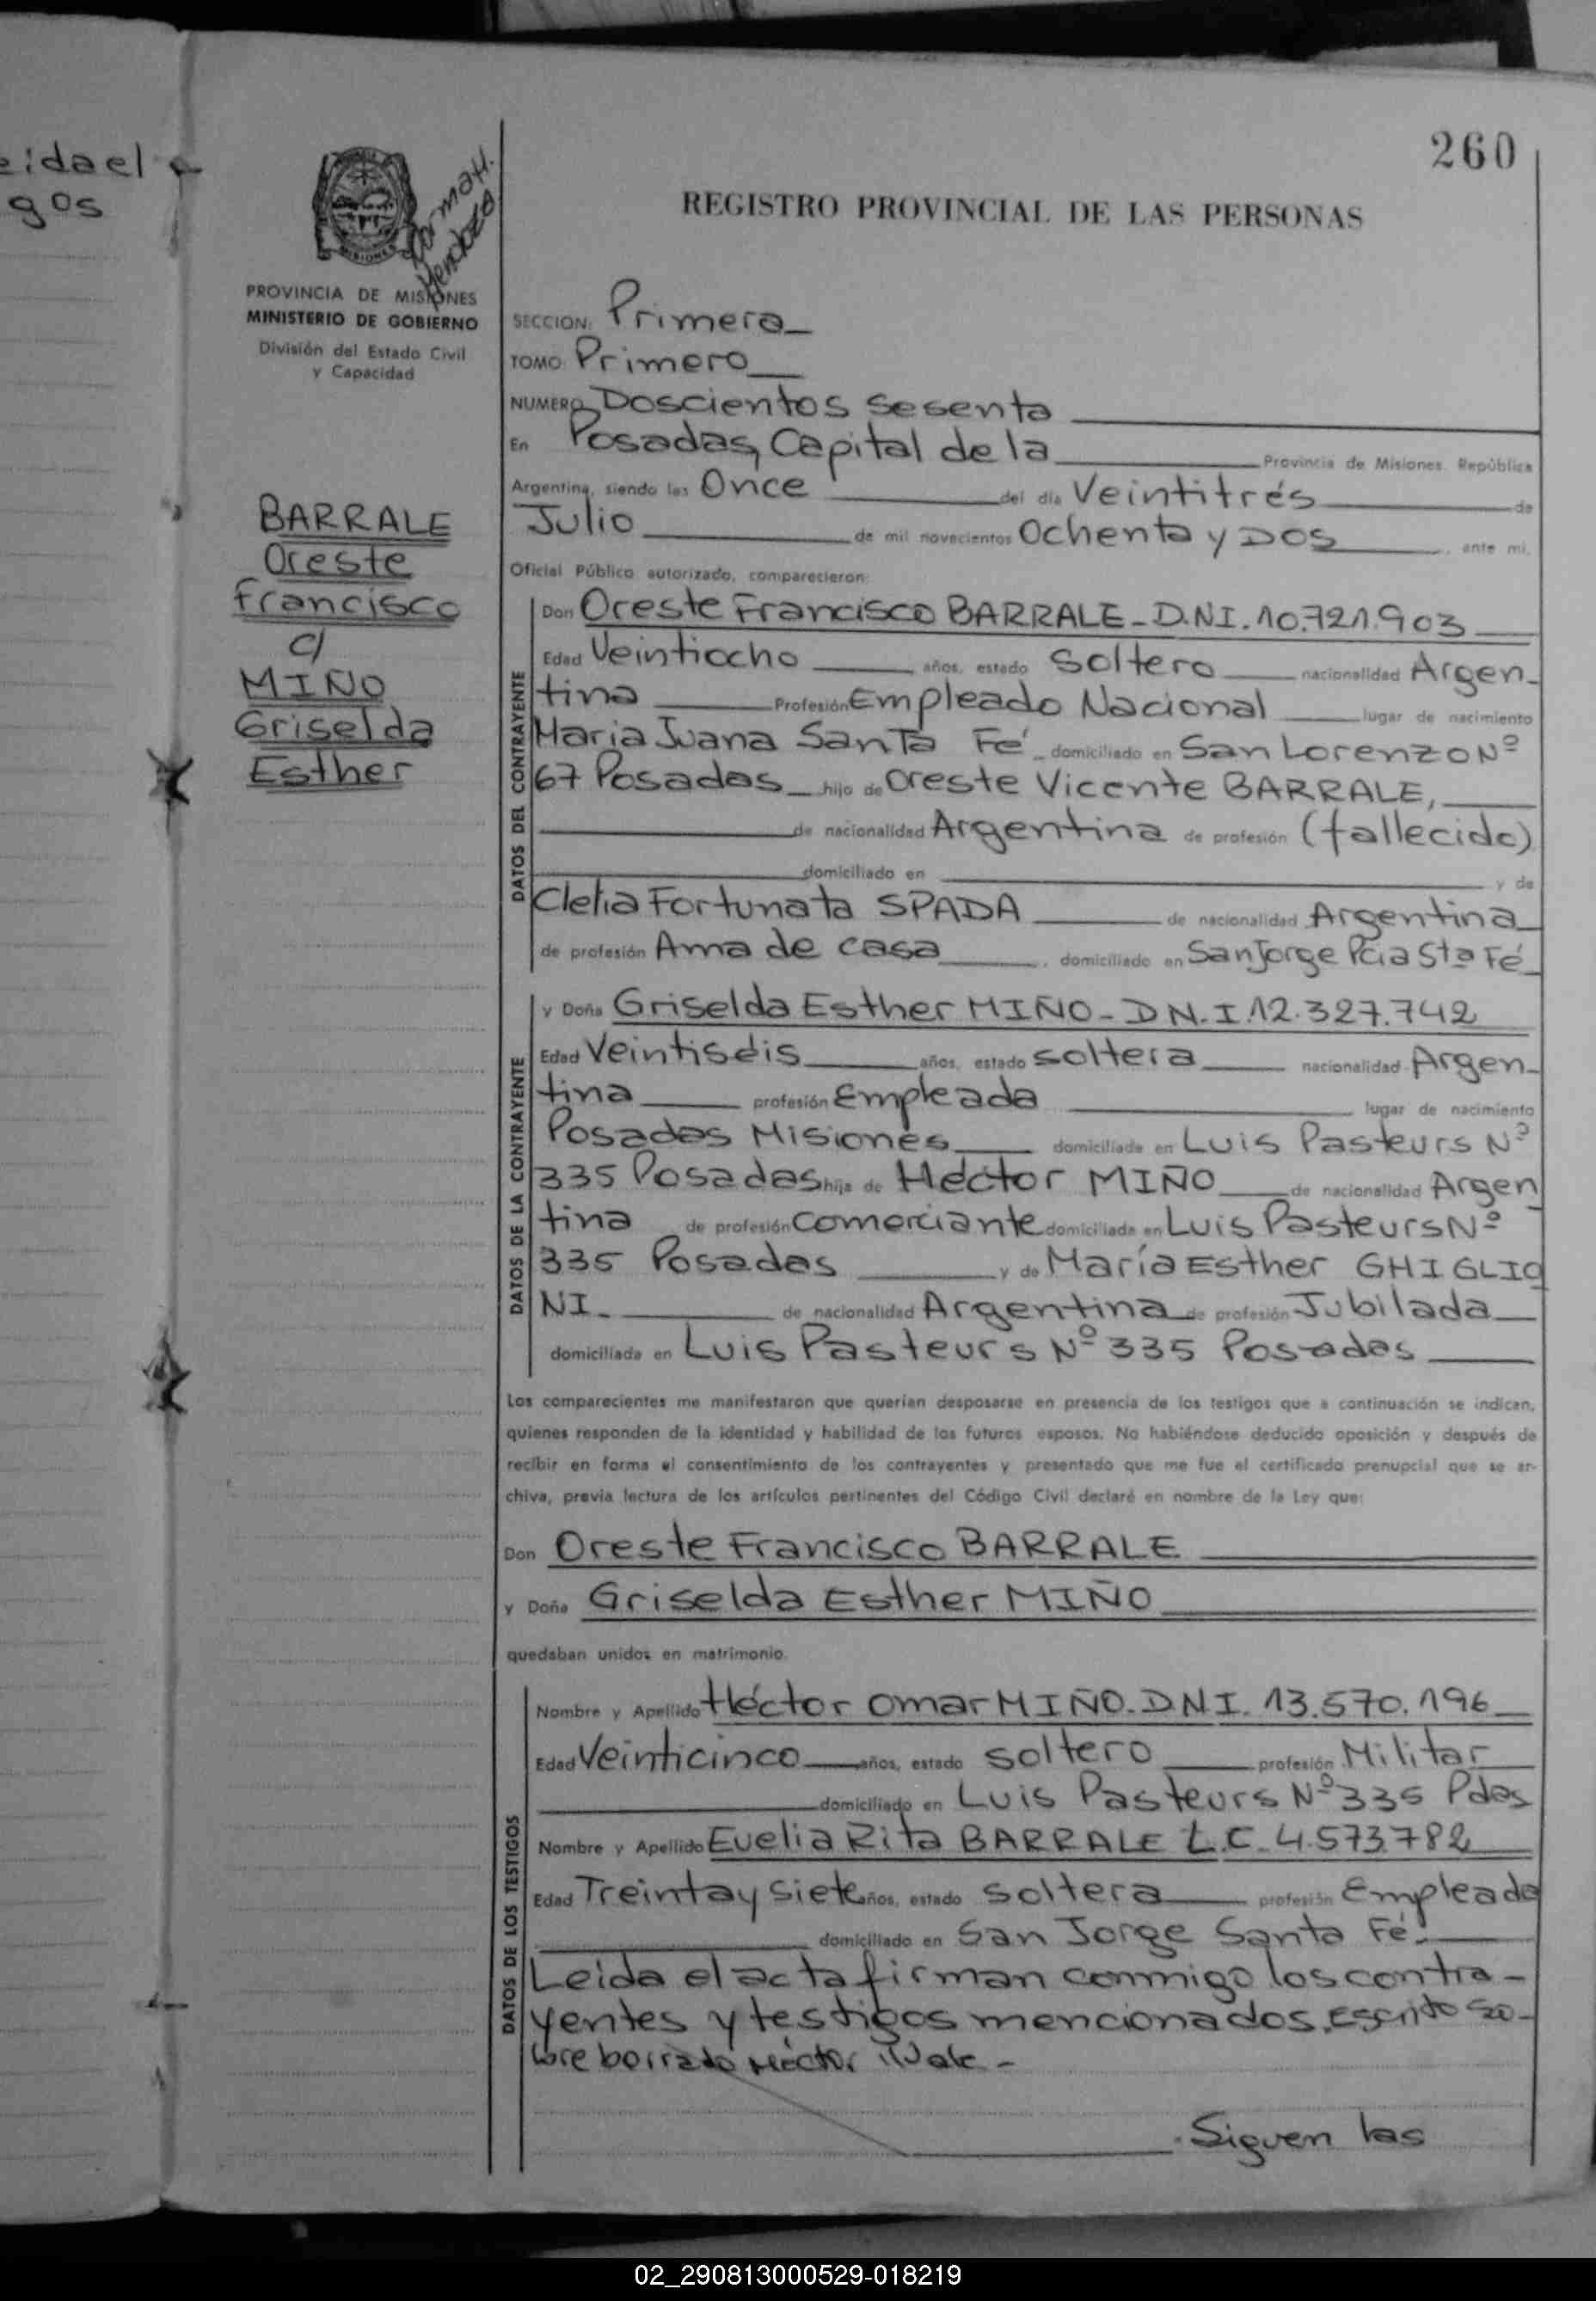 eidael
gos
260
REGISTRO PROVINCIAL DE LAS PERSONAS
MISIONES
Mendoza
PROVINCIA DE MISIONES
MINISTERIO DE GOBIERNO
División del Estado Civil
y Capacidad
BARRALE
Oreste
Francisco
c/
MIÑO
Griselda
Esther
SECCION: Primera
TOMO: Primero
NUMERO Doscientos sesenta
En Posadas, Capital de la Provincia de Misiones República
Argentina, siendo las Once del día Veintitrés de
Julio de mil novecientos Ochenta y DOS, ante mi,
Oficial Público autorizado, comparecieron:
DATOS DEL CONTRAYENTE
Don Oreste Francisco BARRALE - D.N.I. 10.721.903
Edad Veintiocho años, estado Soltero nacionalidad Argen-
tina Profesión Empleado Nacional lugar de nacimiento
Maria Juana Santa Fé - domiciliado en San Lorenzo Nº
67 Posadas - hijo de Oreste Vicente BARRALE,
de nacionalidad Argentina de profesión (fallecido)
domiciliado en y de
Clelia Fortunata SPADA de nacionalidad Argentina
de profesión Ama de casa, domiciliado en San Jorge Pcia Sta Fé
DATOS DE LA CONTRAYENTE
y Doña Griselda Esther MIÑO - D.N.I. 12.327.742
Edad Veintiséis años, estado soltera nacionalidad Argen-
tina profesión Empleada lugar de nacimiento
Posadas Misiones domiciliada en Luis Pasteurs Nº
335 Posadas hija de Héctor MIÑO de nacionalidad Argen
tina de profesión comerciante domiciliada en Luis Pasteurs Nº
335 Posadas y de María Esther GHIGLIO
NI. de nacionalidad Argentina de profesión Jubilada
domiciliada en Luis Pasteurs Nº 335 Posadas
Los comparecientes me manifestaron que querían desposarse en presencia de los testigos que a continuación se indican,
quienes responden de la identidad y habilidad de los futuros esposos. No habiéndose deducido oposición y después de
recibir en forma el consentimiento de los contrayentes y presentado que me fue el certificado prenupcial que se ar-
chiva, previa lectura de los artículos pertinentes del Código Civil declaré en nombre de la Ley que:
Don Oreste Francisco BARRALE
y Doña Griselda Esther MIÑO
quedaban unidos en matrimonio.
DATOS DE LOS TESTIGOS
Nombre y Apellido Héctor Omar MIÑO - D.N.I. 13.570.196
Edad Veinticinco años, estado soltero profesión Militar
domiciliado en Luis Pasteurs Nº 335 Pdas
Nombre y Apellido Euelia Rita BARRALE L.C. 4.573.782
Edad Treinta y siete años, estado soltera profesión Empleada
domiciliado en San Jorge Santa Fé.
Leida el acta firman conmigo los contra-
yentes y testigos mencionados. Escrito so-
bre borrado Héctor Vale -
Siguen las
02_290813000529-018219